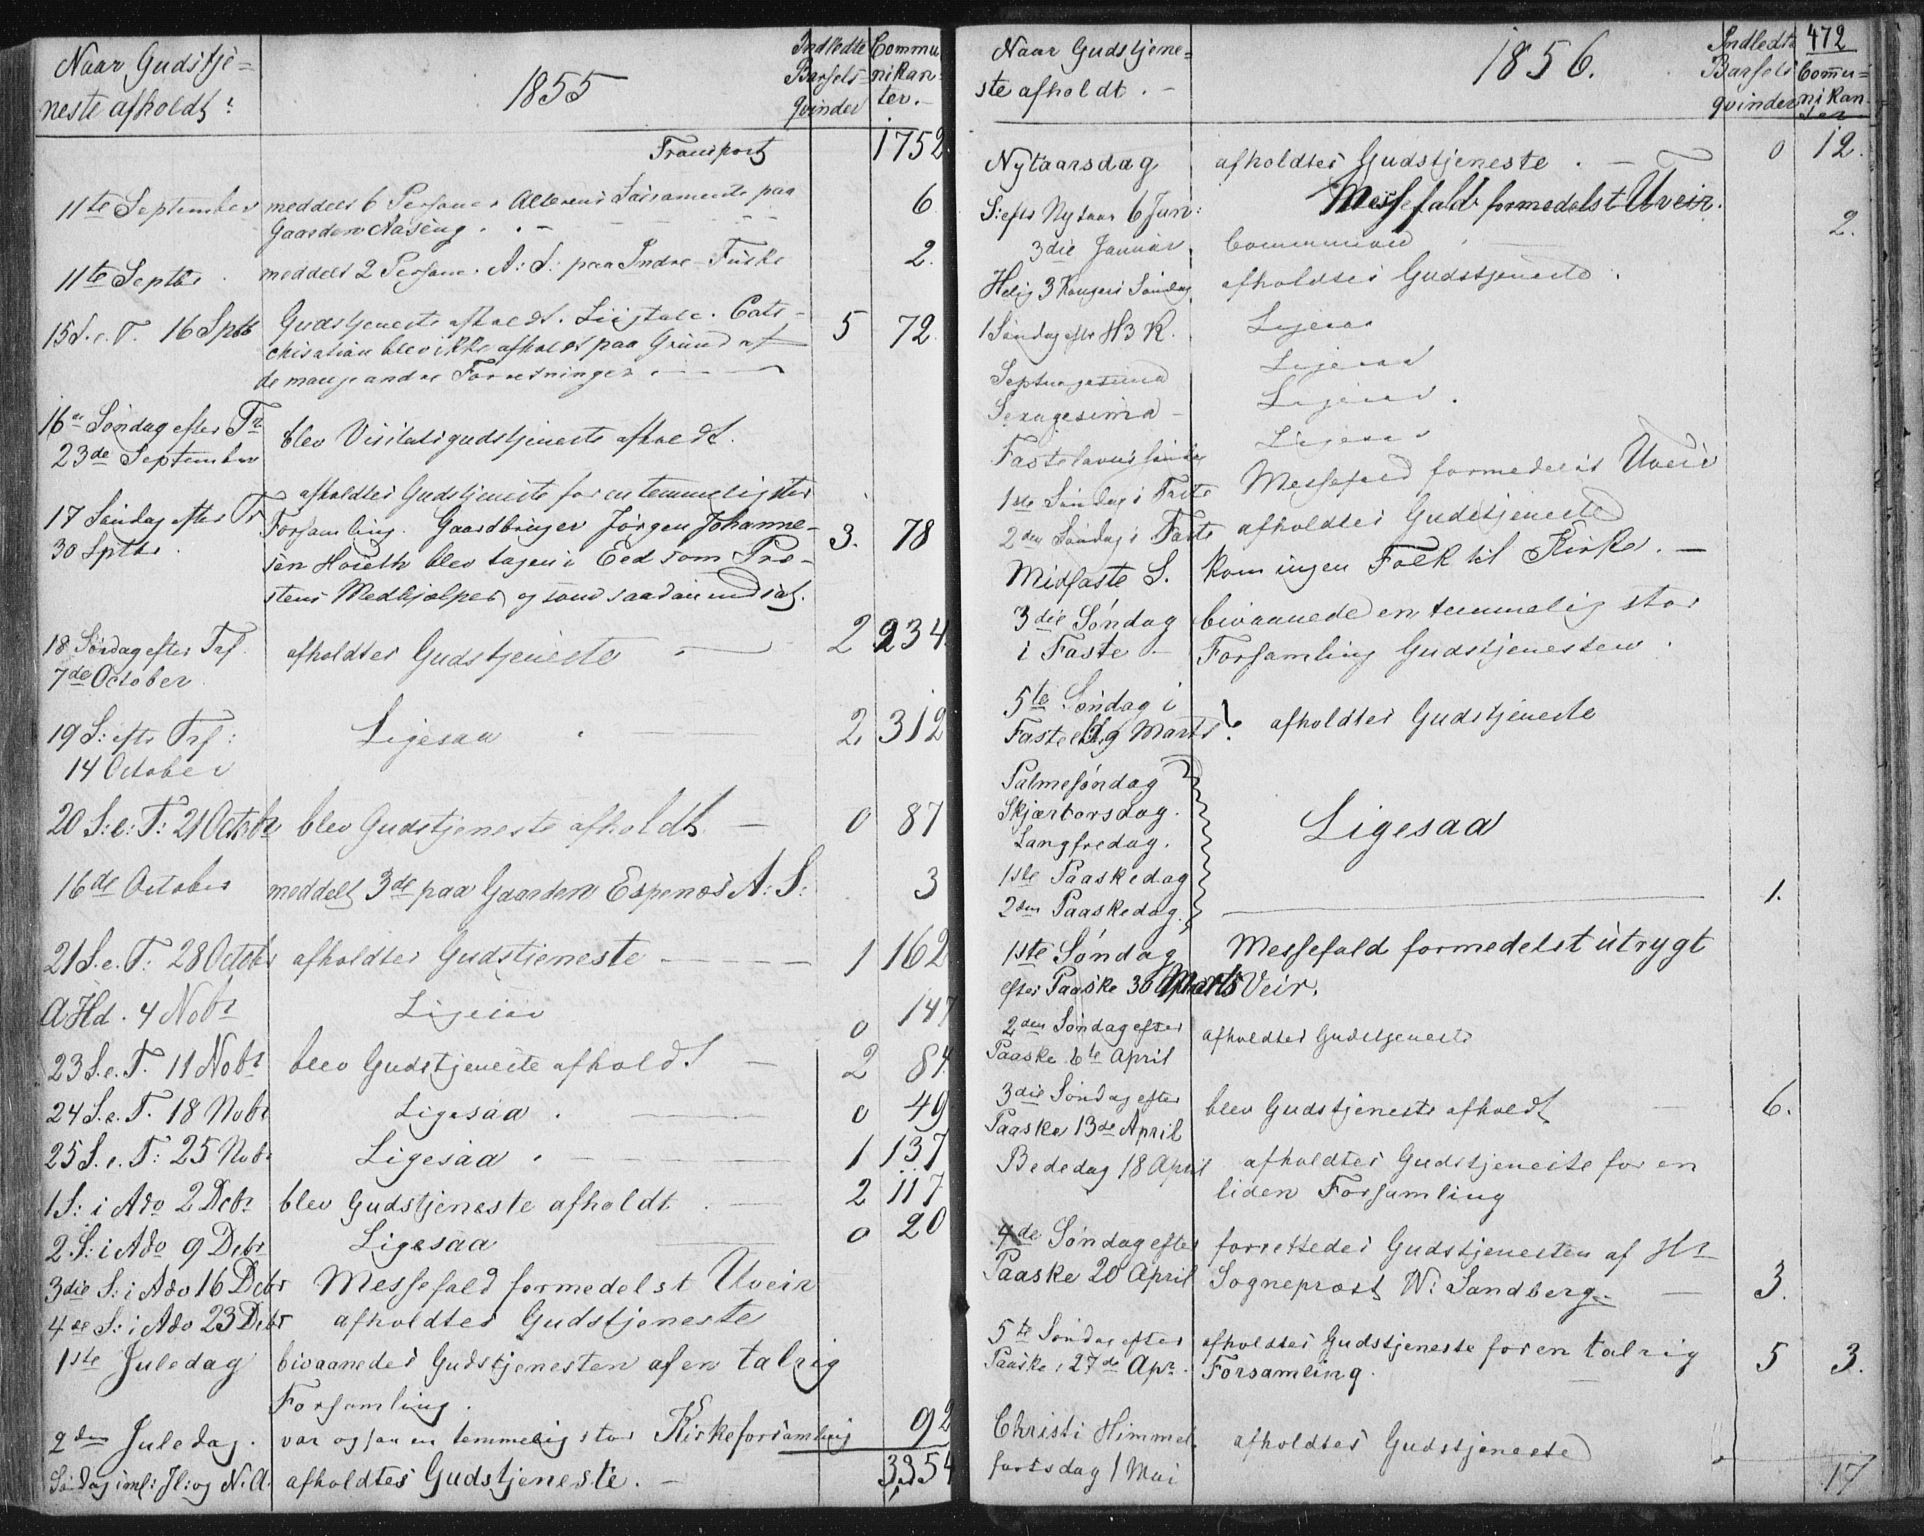 Naar Gudstje=
neste afholdt:
1855
Indledte
Barsels-
qvinder
Commu
nikan-
ter.-
Transport 1752
11te September meddelt 6 Personer Alterens Sacramente paa 6
Gaarden Aaseng . . -
11te Septbr. meddelt 2 Persone. A: S: paa Indre 2.
15 S. e. T. 16 Sptb Gudstjeneste afholdt. Liigtale. Cate- 5 72.
chisation blev ikke afholdt paa Grund af
de mange andre Forretninger . - - -
16de Søndag efter Tr.
23de September blev Visitatsgudstjeneste afholdt.
17 Søndag efter Tr afholdtes Gudstjeneste for en temmelig stor
30 Sptbr. Forsamling. Gaardbruger Jørgen Johanne- 3. 78
sen blev tagen i Eed som Præ-
stens Medhjælper og som saadan indsat.
18 Søndag efter Trf. afholdtes Gudstjeneste 2 234.
7de October
19 S: eftr Trf: Ligesaa . - 2, 312
14 October
20 S: e: T: 21 Octobr blev Gudstjeneste afholdt. - 0 87
16de October meddelt 3de paa Gaarden Espenes A: S: 3
21 S. e. T: 28 Octobr afholdtes Gudstjeneste - - - 1 162
A Hd. 4 Nobr Ligesaa 0 147
23 S. e. T. 11 Nobr blev Gudstjeneste afholdt - 2 84.
24 S. e. T. 18 Nobr Ligesaa . - 0 49
25 S. e. T: 25 Nobr Ligesaa . - - 1 137
1 S: i Adv 2 Debr blev Gudstjeneste afholdt . - 2 117
2 S: i Adv 9 Debr Ligesaa 0 20
3die S: i Adv 16 Debr Messefald formedelst Uveir
4de S: i Adv 23 Debr afholdtes Gudstjeneste
1ste Juledag bivaanedes Gudstjenesten af en talrig
Forsamling.
2den Juledag. var ogsaa en temmelig stor Kirkeforsamling 92
Søndag iml: Jl: og N.A. afholdtes Gudstjeneste. - 3354
Naar Gudstjene=
ste afholdt. -
1856.
Indledte
Barsels
qvinder
472
Commu=
nikan-
ter
Nytaarsdag afholdtes Gudstjeneste . - 0 12.
S: eftr Nytaar 6 Jan: Messefald formedelst Uveir.
3die Januar. Communion 2.
Helig 3 Kongers Søndag afholdtes Gudstjeneste.
1 Søndag eftr H 3 K. Ligesaa
Septuagesima Ligesaa
Sexagesima - Ligesaa.
Fastelavns Søndag Ligesaa
1ste Søndag i Faste Messefald formedelst Uveir
2den Søndag i Faste afholdtes Gudstjeneste
Midfaste S. kom ingen Folk til Kirke. -
3die Søndag bivaanede en temmelig stor
i Faste - Forsamling Gudstjenesten.
5te Søndag i
Faste 9 Marts. afholdtes Gudstjeneste
Palmesøndag
Skjærtorsdag.
Langfredag. Ligesaa
1ste Paaskedag
2den Paaskedag. 1.
1ste Søndag Messefald formedelst utrygt
efter Paaske 30 Marts Veir.
2den Søndag efter afholdtes Gudstjeneste
Paaske 6te April
3die Søndag efter blev Gudstjeneste afholdt - 6.
Paaske 13de April
Bededag 18 April afholdtes Gudstjeneste for en
liden Forsamling
4de Søndag efter forrettedes Gudstjenesten af Hr
Paaske 20 April Sogneprest N: Sandberg. - 3.
5te Søndag efter afholdtes Gudstjeneste for en talrig 5 3.
Paaske, 27de Apr. Forsamling.
Christi Himmel. afholdtes Gudstjeneste
fartsdag 1 Mai 17